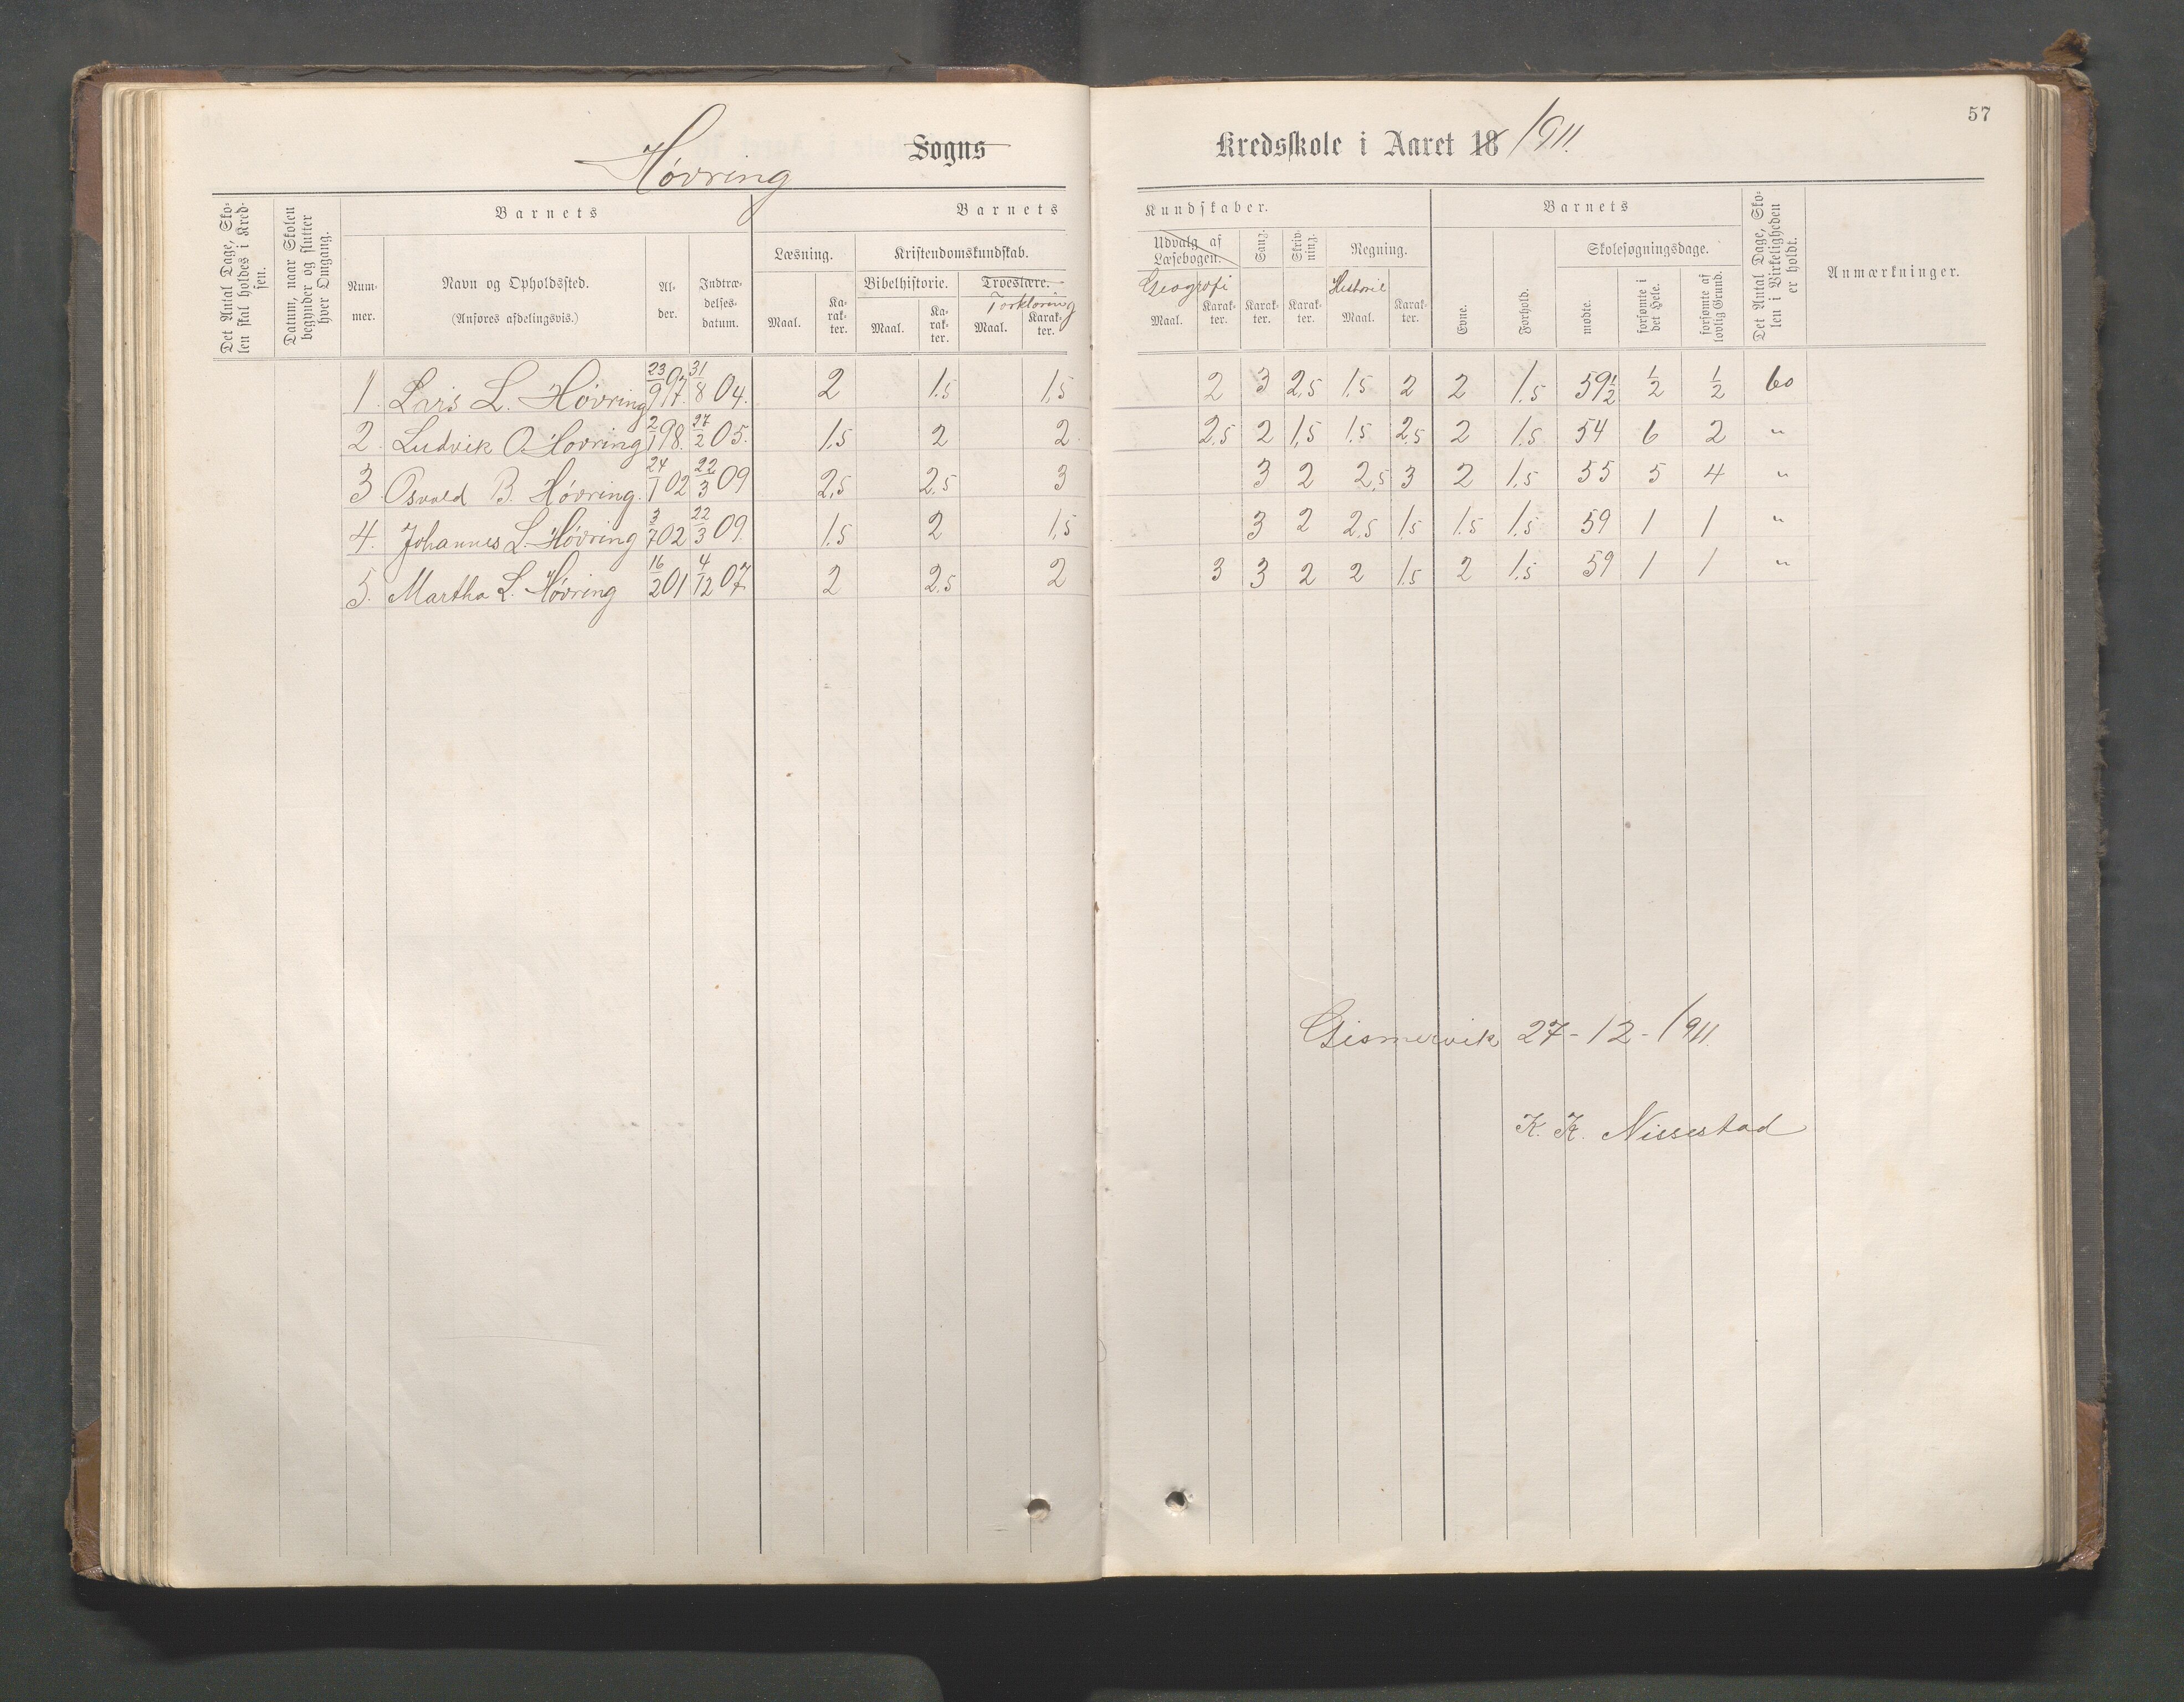 57
Høvring Sogns Kredsskole i Aaret 18 1911.
Det Antal Dage, Skolen skal holdes i Kredsen.
Datum, naar Skolen begynder og slutter hver Omgang.
Barnets
Barnets Kundskaber.
Barnets
Det Antal Dage, Skolen i Virkeligheden er holdt.
Anmærkninger.
Nummer.
Navn og Opholdssted.
(Anføres afdelingsvis.)
Alder.
Indtrædelsesdatum.
Læsning.
Maal.
Karakter.
Kristendomskundskab.
Bibelhistorie.
Maal.
Karakter.
Troeslære.
Forklaring
Maal.
Karakter.
Udvalg af Læsebogen.
Geografi
Maal.
Karakter.
Sang.
Karakter.
Skrivning.
Karakter.
Regning.
Historie
Maal.
Karakter.
Evne.
Forhold.
Skolesøgningsdage.
mødte.
forsømte i det Hele.
forsømte af lovlig Grund.
1. Lars L. Høvring 23/9 97. 31/8 04. 2 1.5 1,5 2 3 2,5 1,5 2 2 1.5 59 1/2 1/2 1/2 60
2. Ludvik O. Høvring 2/1 98. 27/2 05. 1,5 2 2. 2,5 2 1,5 1.5 2,5 2 1.5 54 6 2 "
3. Osvald B. Høvring. 24/1 02 22/3 09 2,5 2,5 3 3 2 2,5 3 2 1,5 55 5 4 "
4. Johannes L. Høvring 3/7 02 22/3 09. 1.5 2 1,5 3 2 2,5 1,5 1.5 1.5 59 1 1 "
5. Martha L. Høvring 16/2 01 4/12 07 2 2,5 2 3 3 2 2 1.5 2 1,5 59 1 1 "
Gismervik 27-12-1911.
K. K. Nissestad